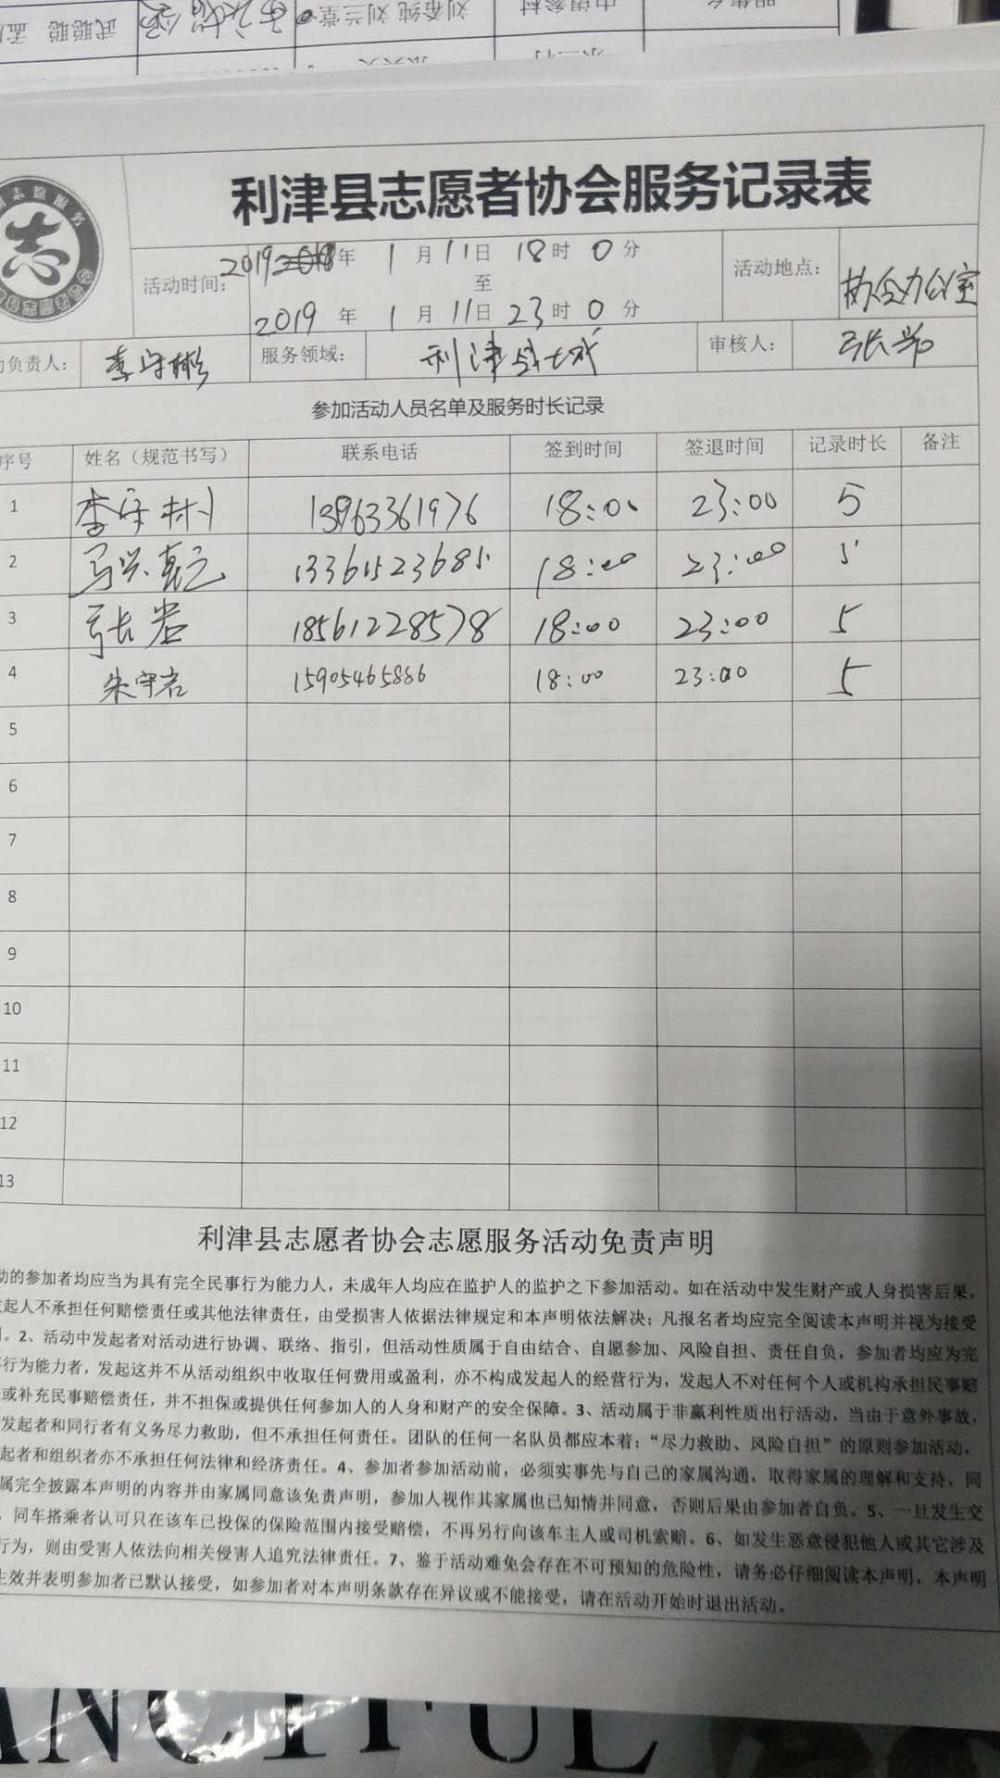 利津县志愿者协会服务记录表
活动时间: 2019年 1月11日 18时 0分
至
2019年 1月11日 23时 0分
活动地点: 协会办公室
负责人: 李守彬 服务领域: 利津县城 审核人: 张岩
参加活动人员名单及服务时长记录
序号 姓名（规范书写） 联系电话 签到时间 签退时间 记录时长 备注
1 李守彬 13963361976 18:00 23:00 5
2 13361523685 18:00 23:00 5
3 张岩 18561228578 18:00 23:00 5
4 朱守岩 15905465886 18:00 23:00 5
5
6
7
8
9
10
11
12
13
利津县志愿者协会志愿服务活动免责声明
动的参加者均应当为具有完全民事行为能力人，未成年人均应在监护人的监护之下参加活动。如在活动中发生财产或人身损害后果，
起人不承担任何赔偿责任或其他法律责任，由受损害人依据法律规定和本声明依法解决；凡报名者均应完全阅读本声明并视为接受
。2、活动中发起者对活动进行协调、联络、指引，但活动性质属于自由结合、自愿参加、风险自担、责任自负，参加者均应为完
行为能力者，发起这并不从活动组织中收取任何费用或盈利，亦不构成发起人的经营行为，发起人不对任何个人或机构承担民事赔
或补充民事赔偿责任，并不担保或提供任何参加人的人身和财产的安全保障。3、活动属于非赢利性质出行活动，当由于意外事故，
发起者和同行者有义务尽力救助，但不承担任何责任。团队的任何一名队员都应本着：“尽力救助、风险自担”的原则参加活动，
起者和组织者亦不承担任何法律和经济责任。4、参加者参加活动前，必须实事先与自己的家属沟通，取得家属的理解和支持，同
属完全披露本声明的内容并由家属同意该免责声明，参加人视作其家属也已知情并同意，否则后果由参加者自负。5、一旦发生交
，同车搭乘者认可只在该车已投保的保险范围内接受赔偿，不再另行向该车主人或司机索赔。6、如发生恶意侵犯他人或其它涉及
行为，则由受害人依法向相关侵害人追究法律责任。7、鉴于活动难免会存在不可预知的危险性，请务必仔细阅读本声明，本声明
生效并表明参加者已默认接受，如参加者对本声明条款存在异议或不能接受，请在活动开始时退出活动。